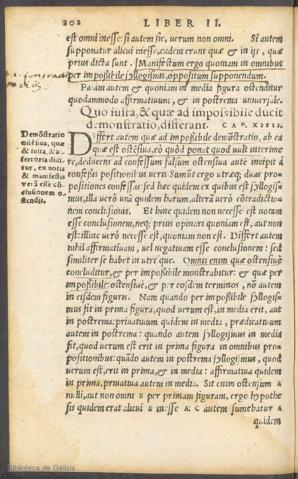 202 LIBER II.
est omni inesse: si autem sic, uerum non omni. Si autem
supponatur alicui inesse, eadem erunt quæ & in ijs, quæ
prius dicta sunt. Manifestum ergo quoniam in omnibus
per impossibile syllogismus, oppositum supponendum.
Palam autem & quoniam in media figura ostenditur
quodammodo affirmatiuum, & in postrema uniuersale.
Quo iusta, & quæ ad impossibile ducit
demonstratio, differant. CAP. XIIII.
Demõstratio
ostẽsiua, quæ
& iusta, & as-
sertoria dici-
tur, ex notis
& manifestis
verã esse cõ-
clusionem o-
stendit.
Differt autem quæ ad impossibile demõstratio, ab ea
quæ est ostẽsiua, eò quòd ponat quod uult interime
re, deducens ad confessum falsum: ostensiua autẽ incipit à
confessis positionibus ueris. Sumũt ergo utræq; duas pro-
positiones confessas: sed hæc quidem ex quibus est syllogis-
mus, illa uerò unã quidem harum, alterã uerò cõtradictio-
nem conclusionis. Et hinc quidem non necesse est notam
esse conclusionem, neq; prius opinari quoniam est, aut non
est: illinc uerò necesse est, quoniam non est. Differt autem
nihil affirmatiuam, uel negatiuam esse conclusionem: sed
similiter se habet in utrisque. Omnis enim quæ ostensiuè
concluditur, & per impossibile monstrabitur: & quæ per
impossibile: ostensiuè, & per eosdem terminos, nõ autem
in eisdem figuris. Nam quando per impossibile syllogis-
mus fit in prima figura, quod uerum est, in media erit, aut
in postrema: priuatiuum quidem in media, prædicatiuum
autem in postrema: quando autem syllogismus in media
fit, quod uerum est erit in prima figura in omnibus pro-
positionibus: quãdo autem in postrema syllogismus, quod
uerum est, erit in prima, & in media: affirmatiua quidem
in prima, priuatiua autem in media. Sit enim ostensum A
nulli, aut non omni B per primam figuram, ergo hypothe
sis quidem erat alicui B inesse A. C autem sumebatur A
quidem
Biblioteca de Galicia